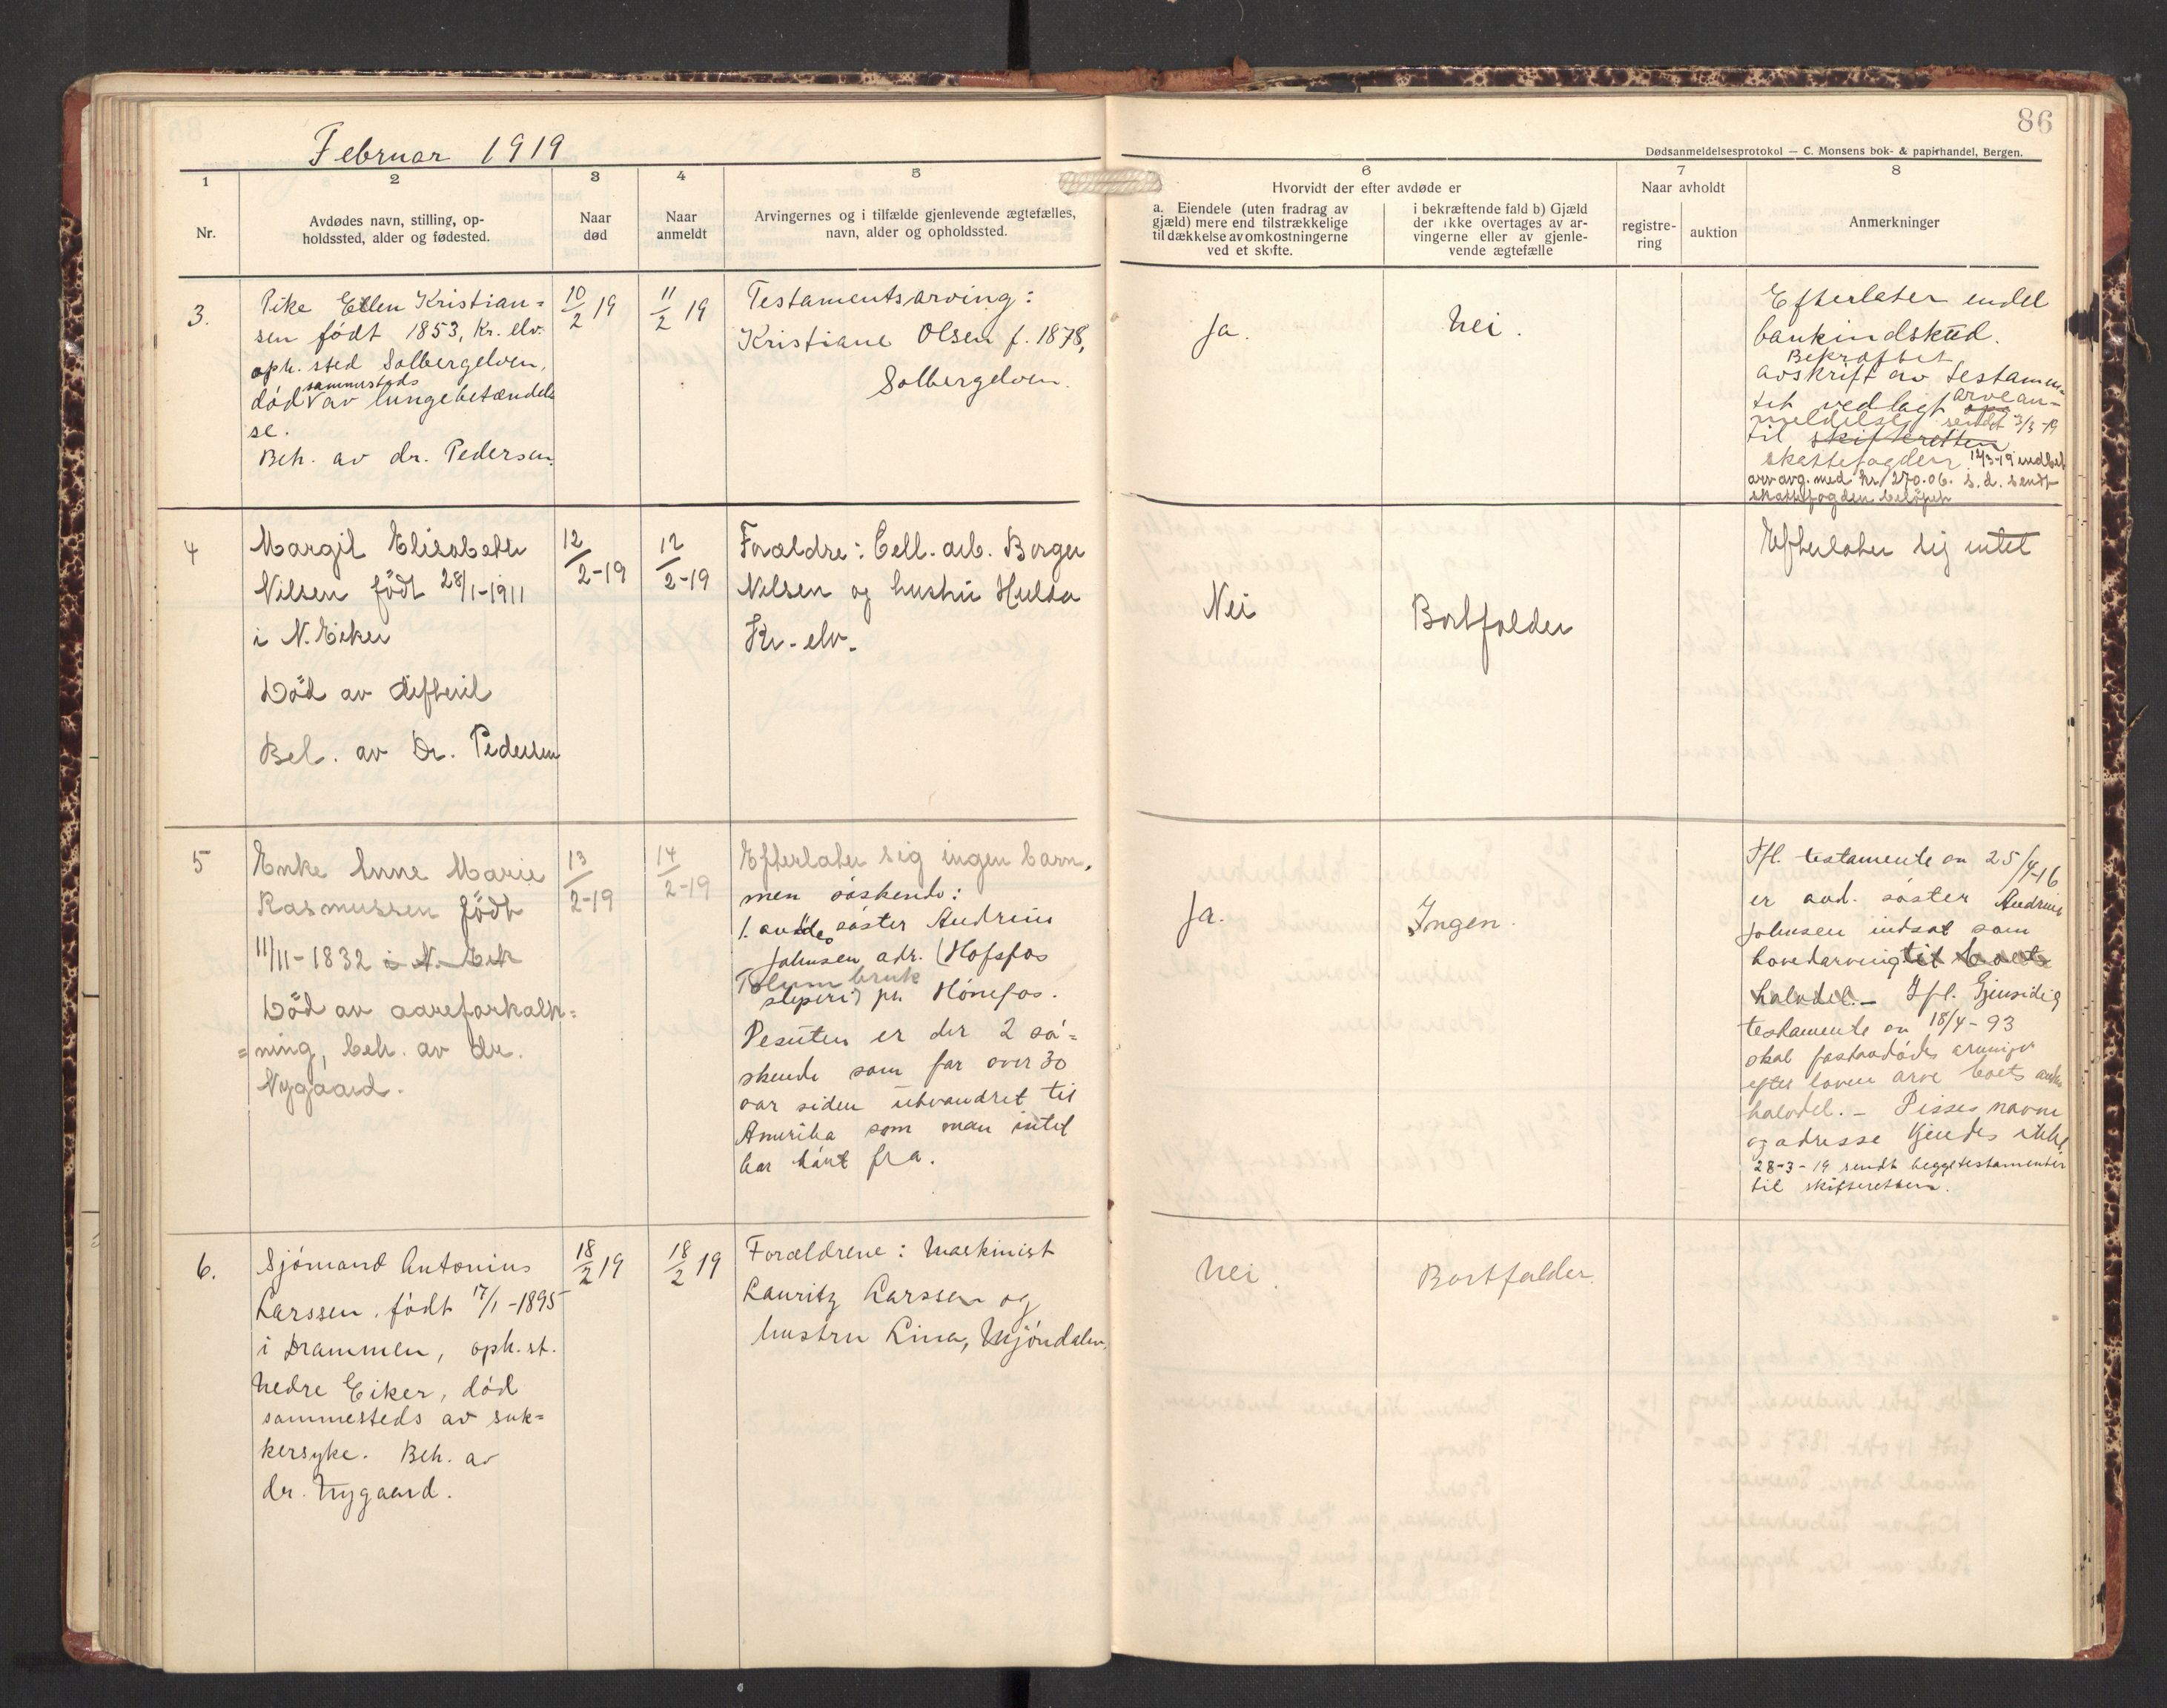 86
Februar 1919
Dødsanmeldelsesprotokol — C. Monsens bok- & papirhandel, Bergen.
1
2
3
4
5
6
7
8
Nr.
Avdødes navn, stilling, op-
holdssted, alder og fødested.
Naar
død
Naar
anmeldt
Arvingernes og i tilfælde gjenlevende ægtefælles,
navn, alder og opholdssted.
Hvorvidt der efter avdøde er
a. Eiendele (uten fradrag av
gjæld) mere end tilstrækkelige
til dækkelse av omkostningerne
ved et skifte.
i bekræftende fald b) Gjæld
der ikke overtages av ar-
vingerne eller av gjenle-
vende ægtefælle
Naar avholdt
registre-
ring
auktion
Anmerkninger
3.
Pike Ellen Kristian=
sen født 1853, Kr. elv.
oph. sted Solbergelven,
sammesteds
død av lungebetændel
se.
Beh. av dr. Pedersen.
10/2 19
11/2 19
Testamentsarving:
Kristiane Olsen f. 1878,
Solbergelven.
Ja.
Nei.
Efterlater endel
bankindskud.
Bekræftet
avskrift av testamen-
tet vedlagt arvean-
meldelse sendt 3/3-19
til skifteretten
skattefogden. 12/3-19 indbet
arv avg. med kr 270.06. s. d. sendt
skattefogden beløpet
4
Margit Elisabeth
Nilsen født 28/1-1911
i N. Eiker
Död av difterit
Beh. av Dr. Pedersen
12/2-19
12/2-19
Forældre: Cell. arb. Borger
Nilsen og hustru Hulda
Kr-elv-
Nei
Bortfalder
Efterlater sig intet
5
Enke Anne Marie
Rasmussen født
11/11-1832 i N. Eik
Död av aareforkalk=
=ning, beh. av dr.
Nygaard.
13/2-19
14/2-19
Efterlater sig ingen barn,
men søskende:
1. avdødes søster Andrine
Johnsen adr. (Hofsfos
bruk
sliperi) pr. Hönefos.
Desuten er der 2 sø=
skende som for over 30
aar siden utvandret til
Amerika som man intet
har hørt fra.
Ja.
Ingen.
Ifl. testamente av 25/4-16
er avd. søster Andrine
Johnsen indsat som
hovedarving til boets
halvdel.- Ifl. Gjensidig
testamente av 18/4-93
skal førstavdødes arvinger
efter loven arve boets anden
halvdel. - Disses navne
og adresse kjendes ikke,
28-3-19 sendt begge testamenter
til skifteretten.
6.
Sjømand Antonius
Larssen, født 17/1-1895
i Drammen, oph. st.
Nedre Eiker, død
sammesteds av suk=
kersyke. Beh. av
dr. Nygaard.
18/2 19
18/2 19
Forældrene: Maskinist
Lauritz Larssen og
hustru Lina, Mjøndalen.
Nei.
Bortfalder.